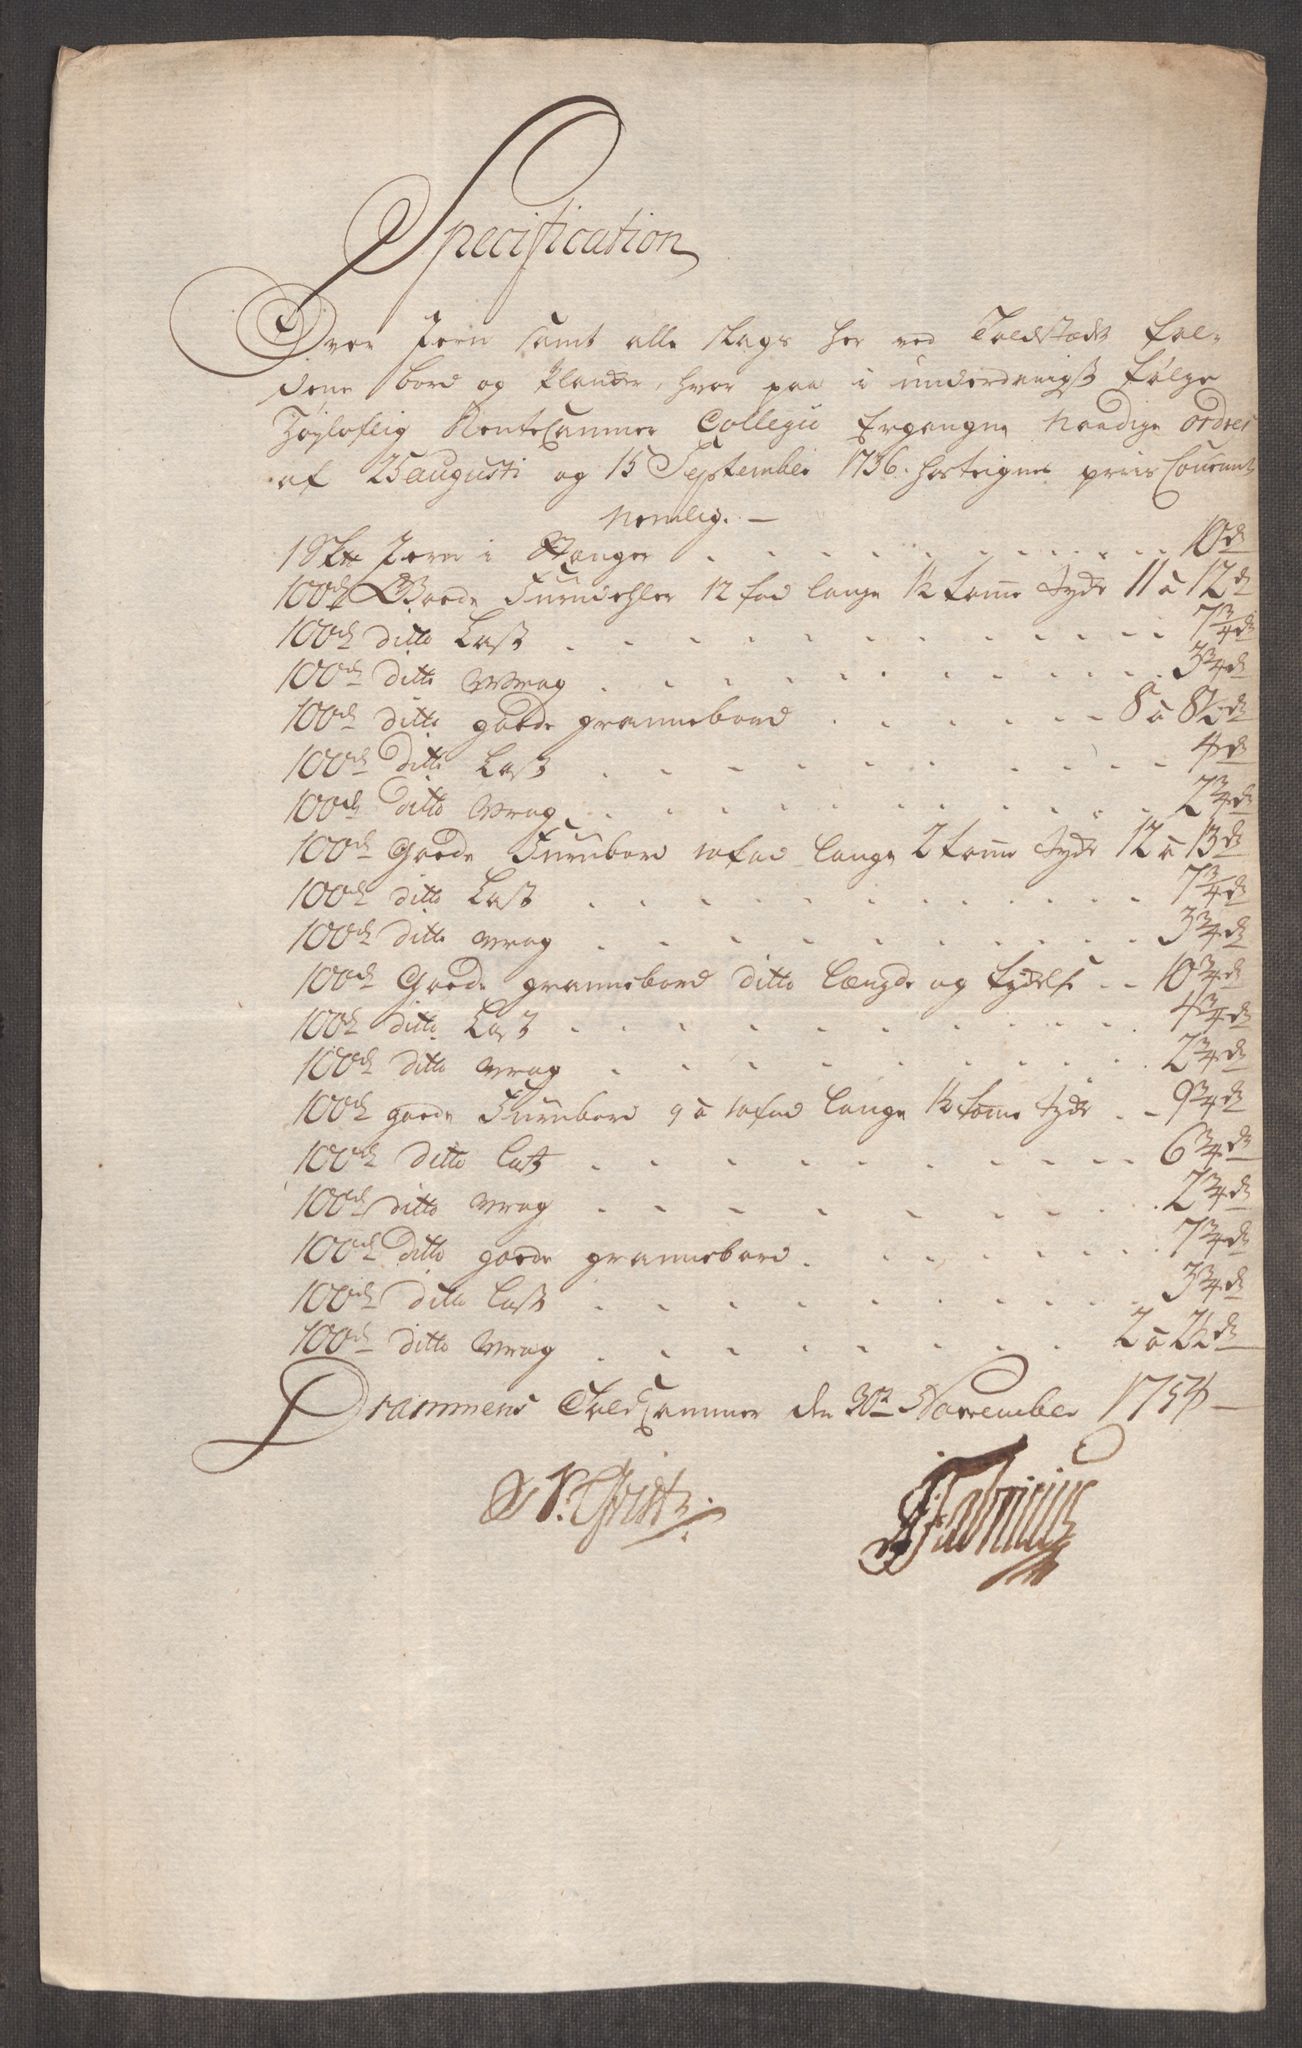 Specification
Over Jern samt alle slags her ved Toldstædet fal-
dene bord og Plancker, hvor paa i underdanigst følge
Høyloflig RenteCammer Collegii Ergangne Naadige ordres
af 25 augusti og 15 September 1736. hosteignes priis Courant
Nemlig. —
1 Sk℔ Jern i Stanger . . . 10 dr
100de Goede Furudehler 12 fod lange 1½ tomme tyche 11 a 12 dr
100de ditto Last . . . 7¾ dr
100de ditto Wrag . . . 3¾ dr
100de ditto goede grannebord . . . 8 a 8½ dr
100de ditto Last . . . 4 dr
100de ditto Wrag . . . 2¾ dr
100de Goede Furubord 10 fod lange 2 tomme tyche 12 a 13 dr
100de ditto Last . . . 7¾ dr
100de ditto wrag . . . 3¾ dr
100de Goede grannebord ditto længde og tychelse . . 10¾ dr
100de ditto Last . . . 4¾ dr
100de ditto wrag . . . 2¾ dr
100de goede Furubord 9 a 10 fod lange 1½ tomme tyche . . 9¾ dr
100de ditto last . . . 6¾ dr
100de ditto wrag . . . 2¾ dr
100de ditto goede grannebord . . . 7¾ dr
100de ditto last . . . 3¾ dr
100de ditto wrag . . . 2 a 2½ dr
Drammens ToldCammer den 30te November 1754 —
Fabricius